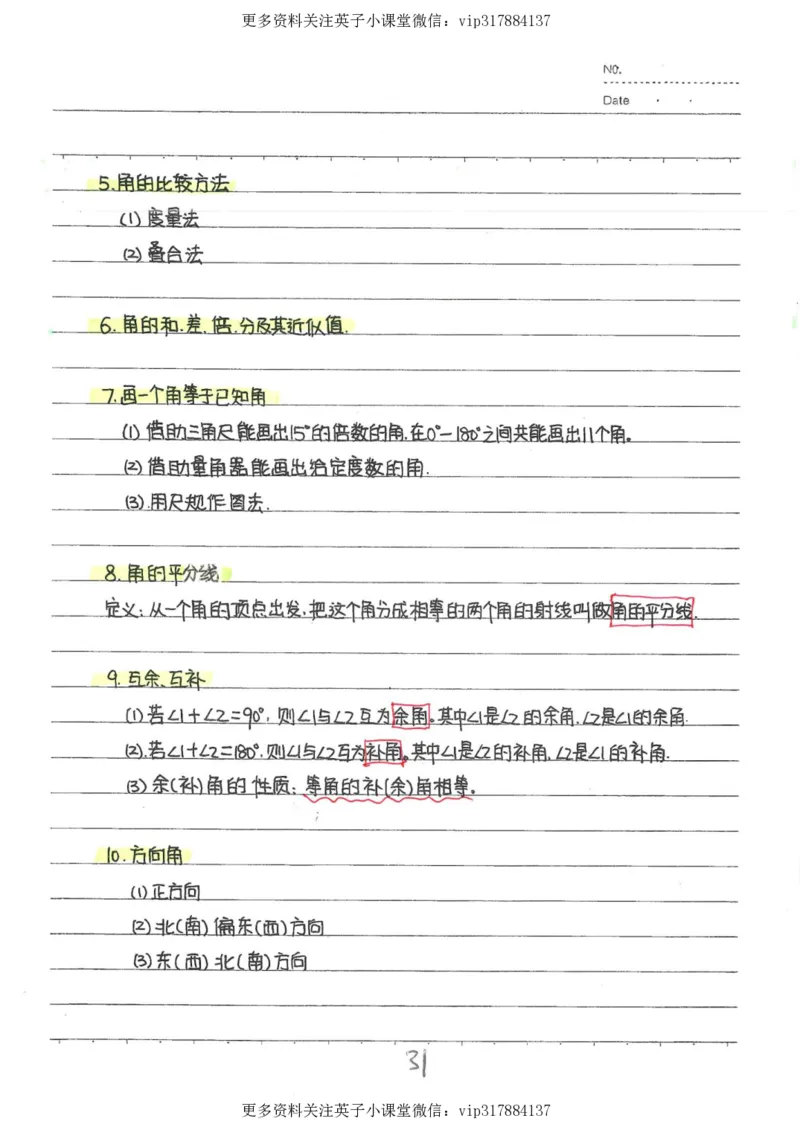 更多资料关注英子小课堂微信：vip317884137
No.
Date . .
5.角的比较方法
(1) 度量法
(2) 叠合法
6. 角的和、差、倍、分及其近似值.
7.画一个角等于已知角
(1) 借助三角尺能画出15°的倍数的角,在0°-180°之间共能画出11个角。
(2) 借助量角器能画出给定度数的角.
(3).用尺规作图法.
8. 角的平分线
定义：从一个角的顶点出发,把这个角分成相等的两个角的射线叫做角的平分线.
9. 互余、互补
(1) 若∠1+∠2=90°, 则∠1与∠2互为余角。其中∠1是∠2的余角,∠2是∠1的余角.
(2).若∠1+∠2=180°,则∠1与∠2互为补角。其中∠1是∠2的补角,∠2是∠1的补角.
(3) 余(补)角的性质：等角的补(余)角相等。
10.方向角
(1)正方向
(2)北(南)偏东(西)方向
(3)东(西)北(南)方向
31
更多资料关注英子小课堂微信：vip317884137